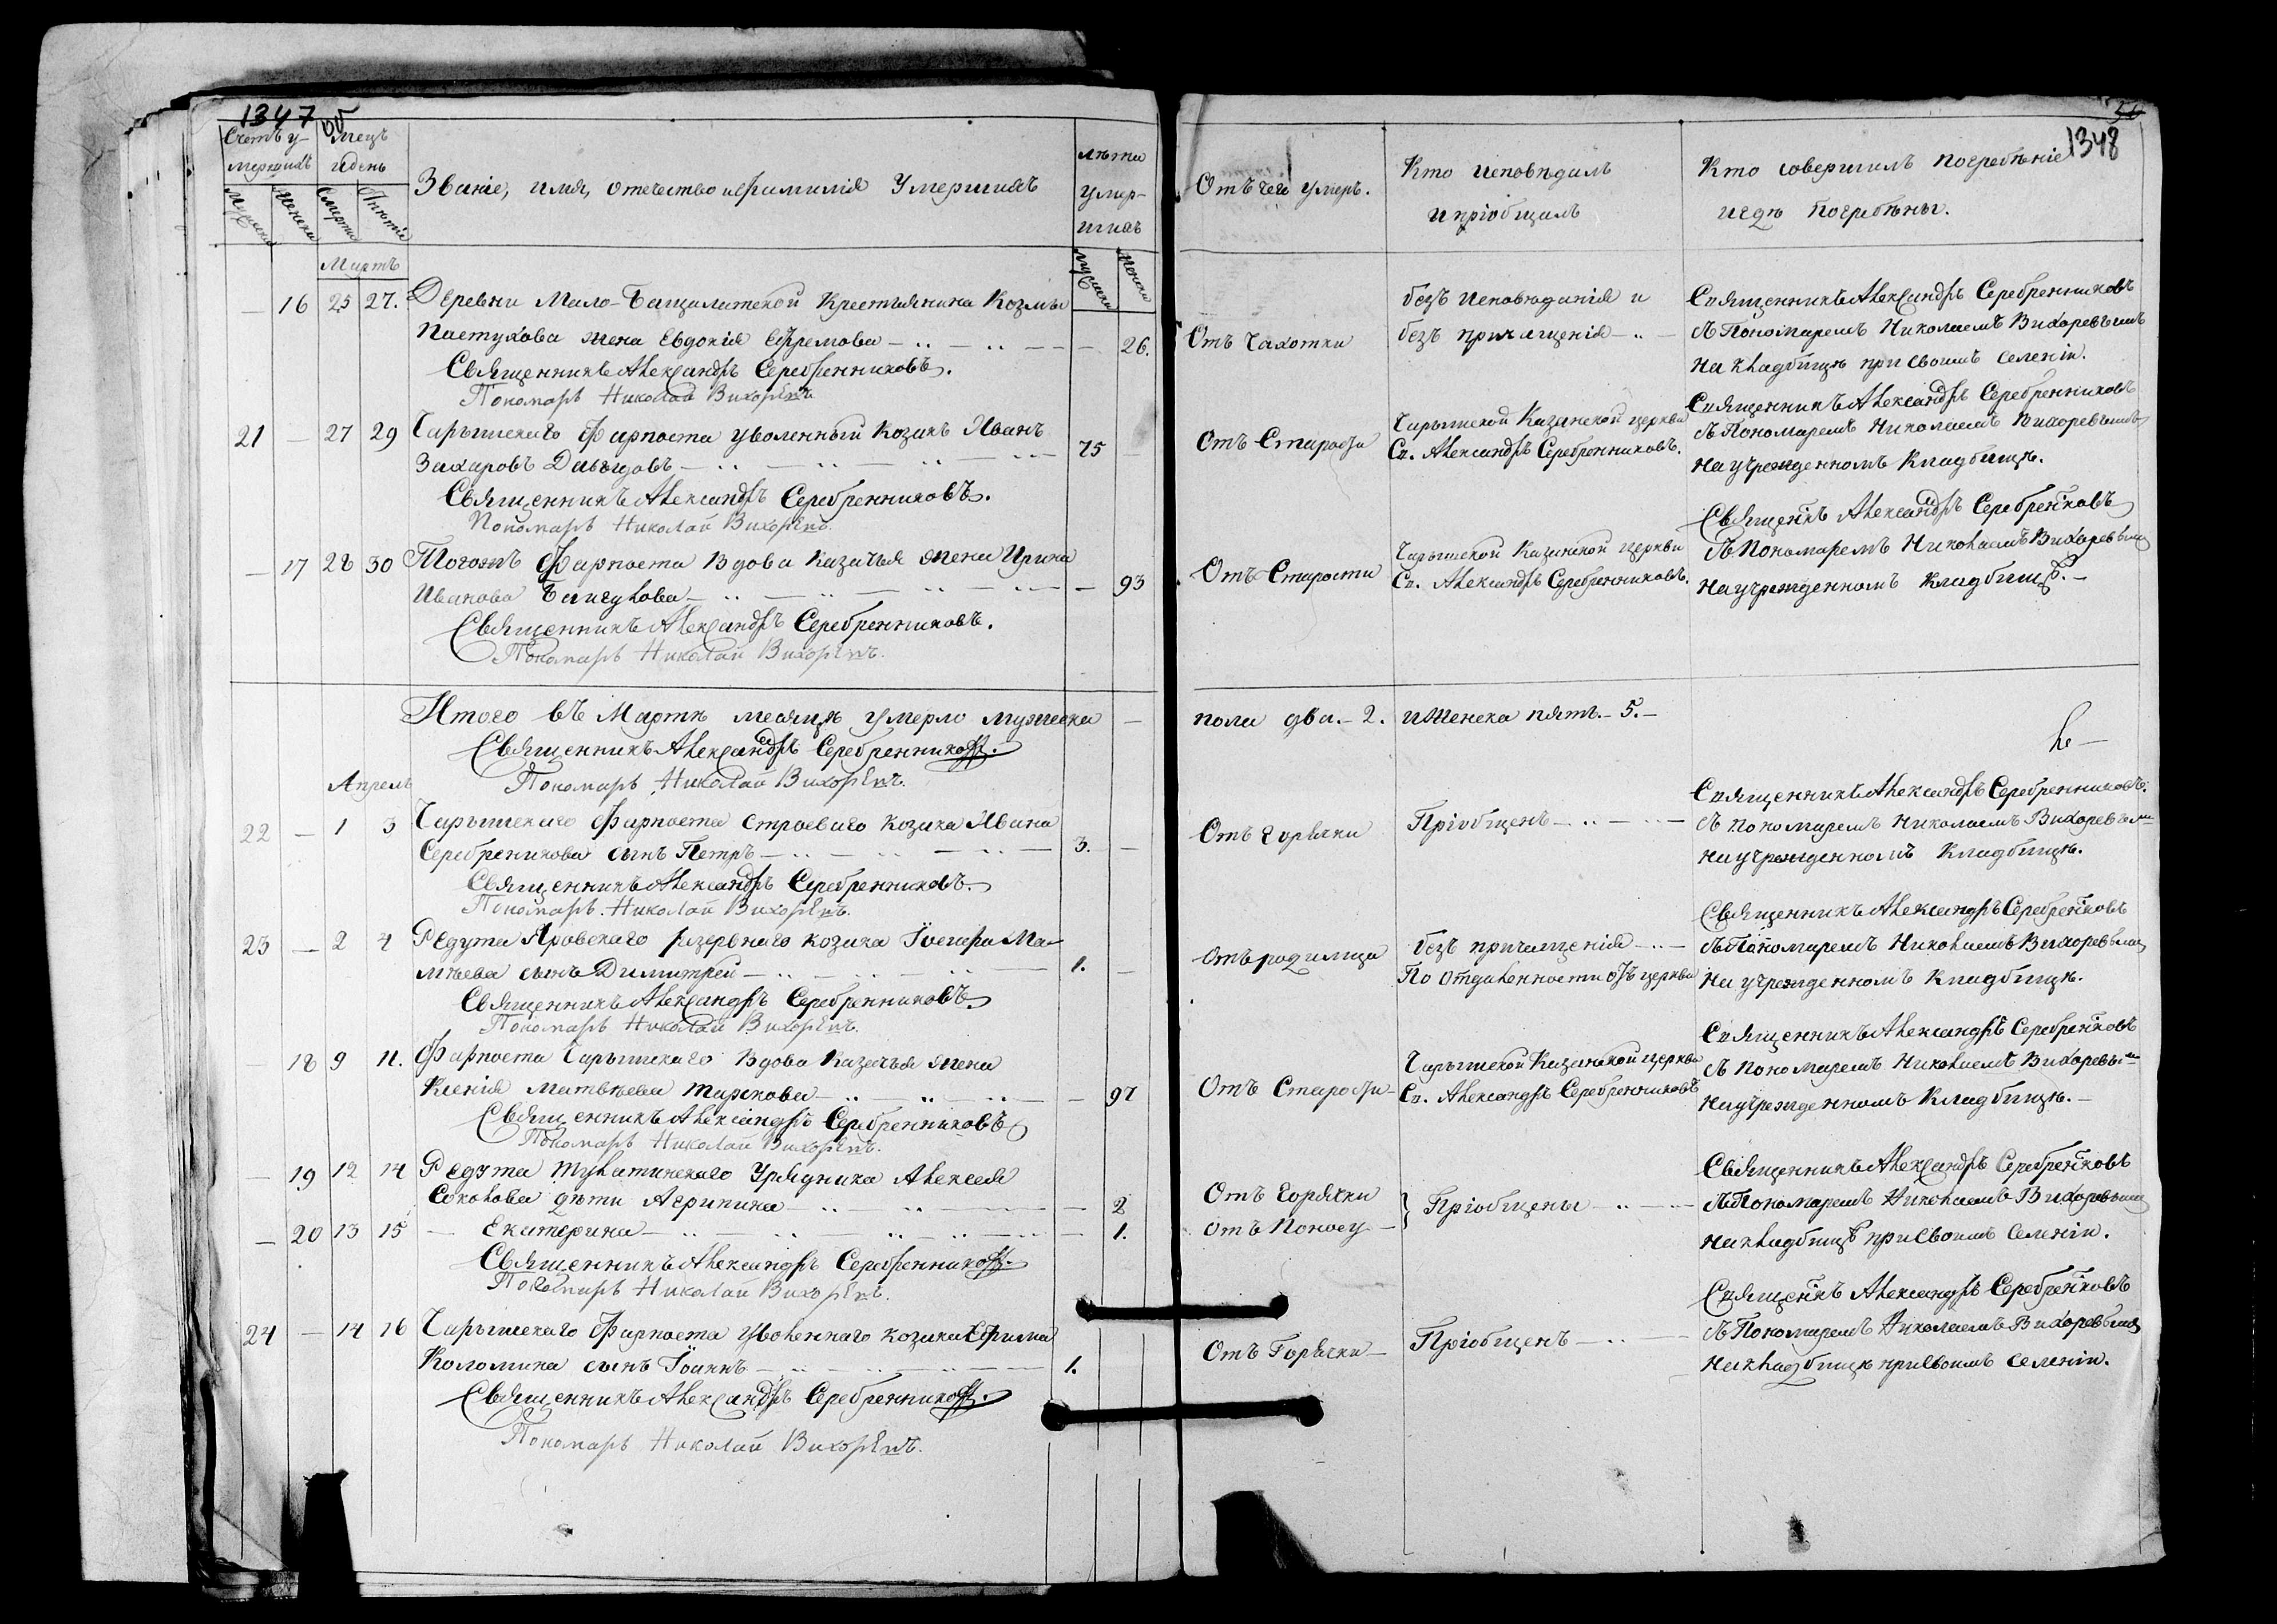 1347
1348
Счетъ у-
мершихъ
Мужеска
Женска
Мець
и день
Смерти
Званіе, имя, отечество и Фамилія Умершихъ
лѣта
умер-
шихъ
Мужеска
Женска
Отъ чего умеръ.
Кто исповѣдалъ
и пріобщалъ
Кто совершилъ погребѣніе
и гдѣ Погребѣны.
Мартъ
— 16 25 27. Деревни Мало-Бащалитской Крестьянина Козмы
Пастухова жена Евдокія Ефремова — 26.
Священникъ Александръ Серебренниковъ.
Пономарь Николай Вихоревъ
Отъ Чахотки
безъ исповѣданія и
безъ причащенія
Священникъ Александръ Серебренниковъ
съ Пономаремъ Николаемъ Вихоревымъ
на кладбищѣ при своимъ селеніи.
21 27 29 Чарышскаго Фарпоста уволенный козакъ Иванъ
Захаровъ Давыдовъ 75 —
Священникъ Александръ Серебренниковъ.
Пономарь Николай Вихоревъ.
Отъ Старости
Чарышской Казанской церкви
Св. Александръ Серебренниковъ.
Священникъ Александръ Серебренниковъ
съ Пономаремъ Николаемъ Вихоревымъ
на учрежденномъ Кладбищѣ.
— 17 28 30 Тогожъ Фарпоста Вдова Казачья жена Ирина
Иванова — 93
Священникъ Александръ Серебренниковъ.
Пономарь Николай Вихоревъ.
Отъ Старости
Чарышской Казанской церкви
Св. Александръ Серебренниковъ.
Священикъ Александръ Серебрениковъ
съ Пономаремъ Николаемъ Вихоревымъ
на учрежденномъ Кладбищѣ.—
Итого въ Мартѣ месяцѣ умерло мужеска — пола два.- 2. и женска пять.- 5.-
Священникъ Александръ Серебренниковъ.
Пономарь Николай Вихоревъ.
Апрель
22 — 1 3 Чарышскаго Фарпоста строеваго козака Ивана
Серебреникова сынъ Петръ 3. —
Священникъ Александръ Серебренниковъ
Пономарь Николай Вихоревъ.
Отъ Горячки
Пріобщенъ
Священникъ Александръ Серебренниковъ.
съ пономаремъ Николаемъ Вихоревымъ
на учрежденномъ Кладбищѣ.
23 — 2 4 Редута Яровскаго резервнаго козака Іосифа Ма-
лѣева сынъ Димитрей 1. —
Священникъ Александръ Серебренниковъ
Пономарь Николай Вихоревъ.
Отъ родимца
безъ причащенія
По Отдаленности отъ церкви
Священникъ Александръ Серебрениковъ
съ Пономаремъ Николаемъ Вихоревымъ
на учрежденномъ Кладбищѣ.
— 18 9 11. Фарпоста Чарышскаго Вдова Казачья жена
Ксенія Матвѣева — 97
Священникъ Александръ Серебренниковъ
Пономарь Николай Вихоревъ.
Отъ Старости
Чарышской Казанской церкви
Св. Александръ Серебренниковъ
Священникъ Александръ Серебрениковъ
съ Пономаремъ Николаемъ Вихоревымъ
на учрежденномъ Кладбищѣ.—
— 19 12 14 Редута Тулатинскаго Урядника Алексея
Соколова дѣти Агрипина — 2
— 20 13 15 — Екатерина — 1.
Священникъ Александръ Серебренниковъ.
Пономарь Николай Вихоревъ.
Отъ Горячки
Отъ Поносу
Пріобщены
Священникъ Александръ Серебрениковъ
съ Пономаремъ Николаемъ Вихоревымъ
на кладбищѣ при своимъ селеніи.
24 — 14 16 Чарышскаго Фарпоста уволеннаго козака Ефима
Коломина сынъ Іоаннъ 1.
Священникъ Александръ Серебренниковъ.
Пономарь Николай Вихоревъ.
Отъ Горячки
Пріобщенъ
Священикъ Александръ Серебрениковъ
съ Пономаремъ Николаемъ Вихоревымъ
на кладбищѣ при своимъ селеніи.